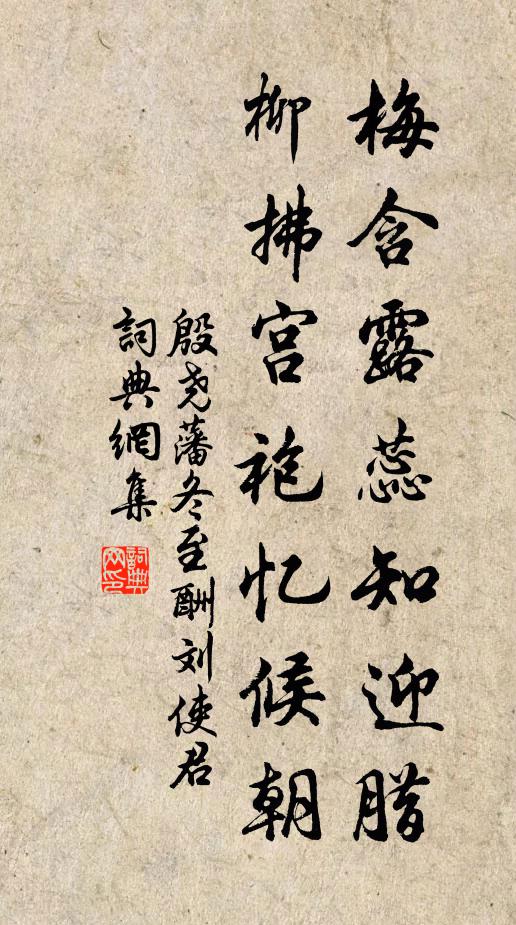 梅含露蕊知迎腊
柳拂宫袍忆候朝
殷尧藩冬至酬刘使君
詞典網集
詞典網印